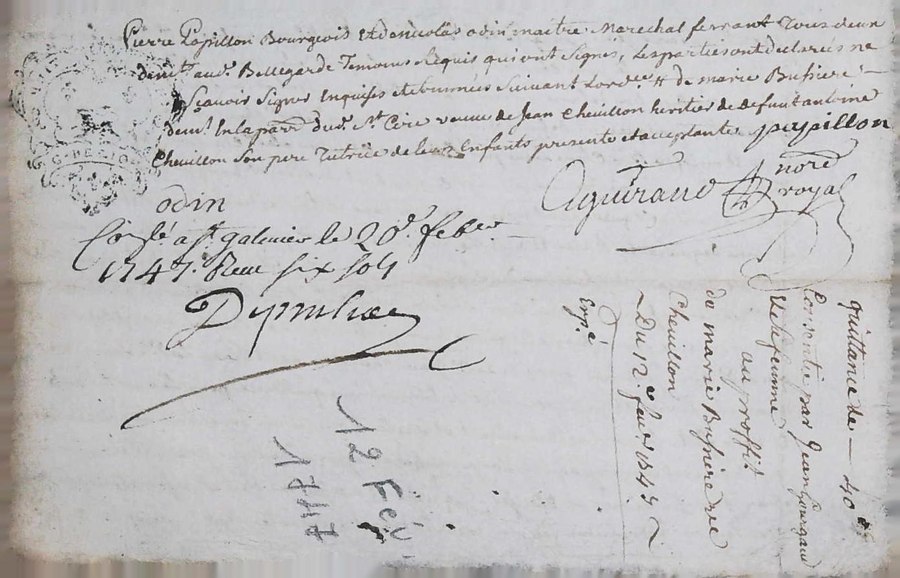 Pierre Papillon Bourgeois et danicolas odin maitre Marechal ferrant Tous deux
demts aud. Bellegarde Temoins Requis qui ont signés, Les parties ont declarées ne
sçavoir Signer Inquises et sounnées suivant Lord.ce # de marie Bussiere
demt Enlaparr. dud. St Cire veuve de Jean Cheuillon heritier de defunt antoine
Cheuillon Son pere Tutrice de leurs Enfants presente et acceptante papillon
Aguiraud nore
royal
odin
a St galmier le 20e feber
1747. Receu six sols
quittance de 40
Consentie par Jean
et sa femme
au proffit
de marie Bussiere vve
Cheuillon
Du 12e feuv. 1747
Exp.é
12 Fév.
1747